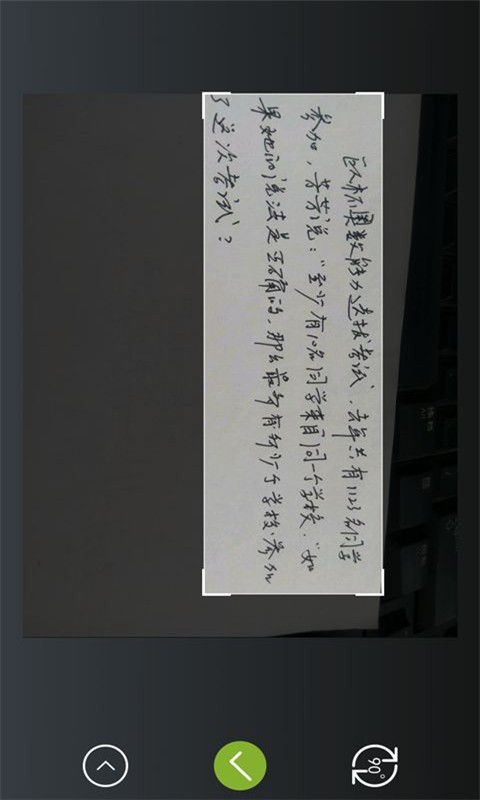 欧林匹奥数能力选拔考试，去年共有1123名同学
参加，芳芳说：“至少有10名同学来自同一个学校．”如
果她的说法是正确的，那么最多有多少个学校参加
了这次考试？
90°